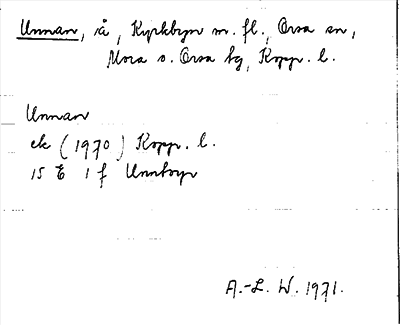 Unnan, å, Kyrkbyn m. fl., Orsa sn,
Mora o. Orsa tg, Kopp. l.
Unnan
ek (1970) Kopp. l.
15 E 1 f Unnbyn
A.-L. W. 1971.